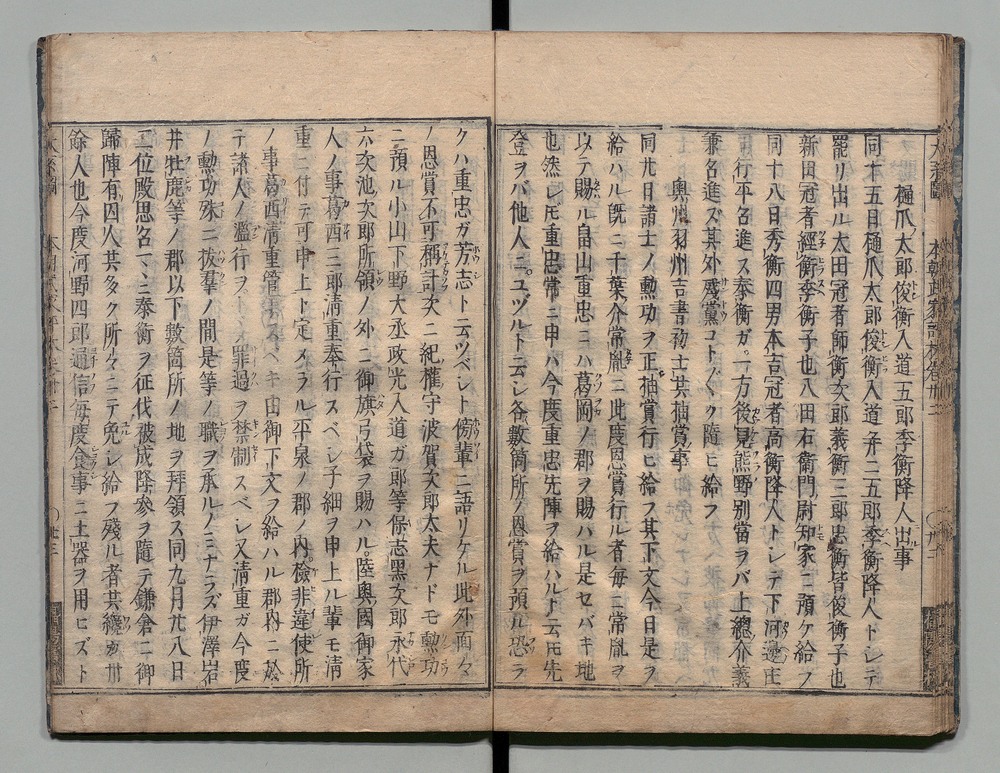 樋爪太郎俊衡入道五郎季衡降人出事
同十五日樋爪太郎俊衡入道弟二五郎季衡降人トシテ
罷リ出ル太田冠者師衡次郎義衡三郎忠衡皆俊衡子也
新田冠者經衡季衡子也八田右衛門尉知家ニ預ケ給フ
同十八日秀衡四男本吉冠者高衡降人トシテ下河邊庄
司行平召進ス泰衡ガ一方後見熊野別當ヲバ上總介義
兼召進ズ其外殘黨コト〴〵ク隨ヒ給フ
奥州羽州吉書勇士其抽賞事
同廿日諸士ノ勲功ヲ正抽賞行ヒ給フ其下文今日是ヲ
給ハル旣ニ千葉介常胤ニ此度恩賞行ル者毎ニ常胤ヲ
以テ賜ル畠山重忠ニハ葛岡ノ郡ヲ賜ハル是セバキ地
也然レ𪜈重忠常ニ申ハ今度重忠先陣ヲ給ハルト云𪜈先
登ヲバ他人ニユヅルト云レ各數箇所ノ恩賞ヲ預ル恐ラ
クハ重忠ガ芳志ト云ツベシト傍輩ニ語リケル此外面々
ノ恩賞不可稱計次ニ紀權守波賀次郎太夫ナドモ勲功
ニ預ル小山下野大丞政光入道ガ郎等保志黒次郎永代
六次池次郎所領ノ外ニ御旗弓袋ヲ賜ハル陸奥國御家
人ノ事葛西三郎清重奉行スベシ子細ヲ申上ル輩モ清
重ニ付テ可申上ト定メラル平泉ノ郡ノ内檢非違使所
ノ事葛西清重管領スベキ由御下文ヲ給ハル郡内ニ於
テ諸人ノ濫行ヲトメ罪過ヲ禁制スベシ又清重ガ今度
ノ勲功殊ニ抜羣ノ間是等ノ職ヲ承ルノミナラズ伊澤岩
井牡鹿等ノ郡以下數箇所ノ地ヲ拜領ス同九月廿八日
二位殿思召マヽニ泰衡ヲ征伐被成降參ヲ隨テ鎌倉ニ御
歸陣有囚人其多ク所々ニテ免シ給フ殘ル者其纔カ卅
餘人也今度河野四郎通信毎度食事ニ土器ヲ用ヒズト